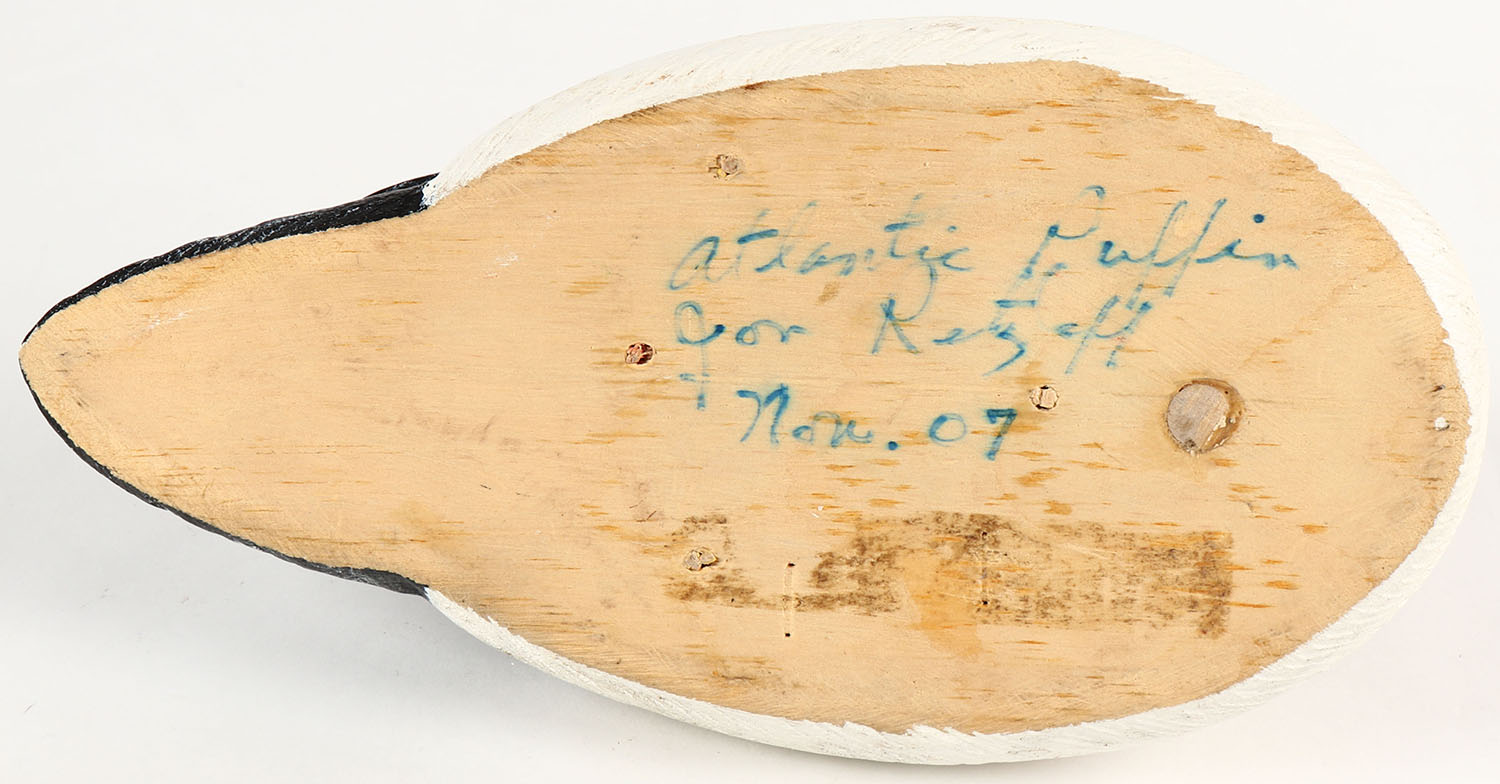 Atlantic Puffin
Jon Retzoff
Nov. 07